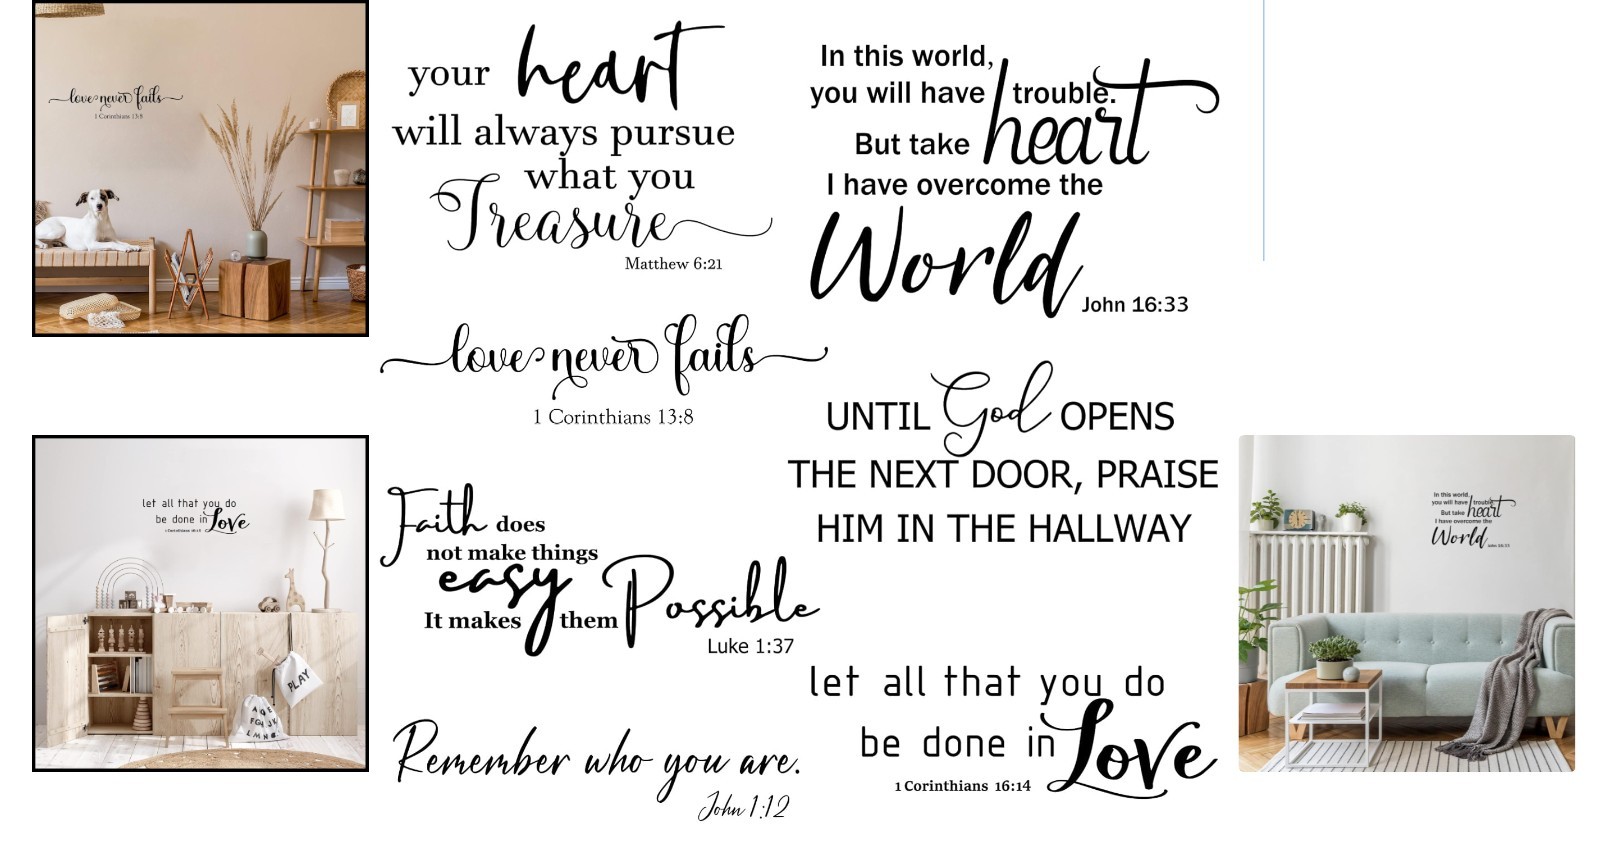 love never fails
1 Corinthians 13:8
your heart
will always pursue
what you
Treasure
Matthew 6:21
In this world,
you will have trouble.
But take heart
I have overcome the
World
John 16:33
love never fails
1 Corinthians 13:8
UNTIL God OPENS
THE NEXT DOOR, PRAISE
HIM IN THE HALLWAY
let all that you do
be done in Love
1 Corinthians 16:14
PLAY
Faith does
not make things
easy
It makes them Possible
Luke 1:37
In this world,
you will have trouble.
But take heart
I have overcome the
World
John 16:33
let all that you do
be done in Love
1 Corinthians 16:14
Remember who you are.
John 1:12